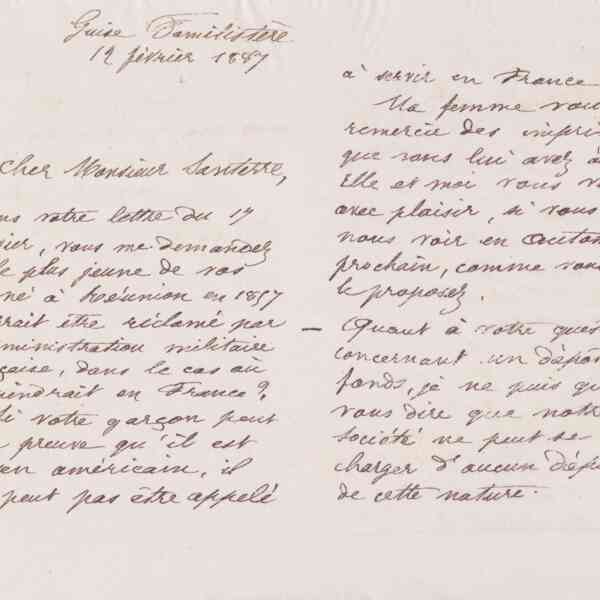 Guise Familistère
12 février 1887
cher Monsieur Santerre,
ns votre lettre du 17
ier, vous me demandez
le plus jeune de vos
né à Réunion en 1857
rait être réclamé par
ministration militaire
çaise, dans le cas où
iendrait en France ?
Si votre garçon peut
preuve qu'il est
en américain, il
peut pas être appelé
à servir en France
Ma femme vou
remercie des impri
que vous lui avez a
Elle et moi vous v
avec plaisir, si vous
nous voir en
prochain, comme vou
le proposez.
— Quant à votre ques
concernant un dépô
fonds, je ne puis qu
vous dire que notr
société ne peut se
charger d'aucun dépo
de cette nature.